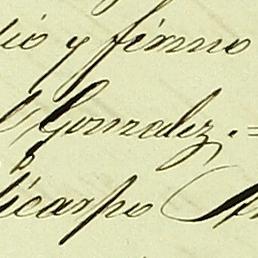 dió y firmó
Gonzalez.=
licarpo